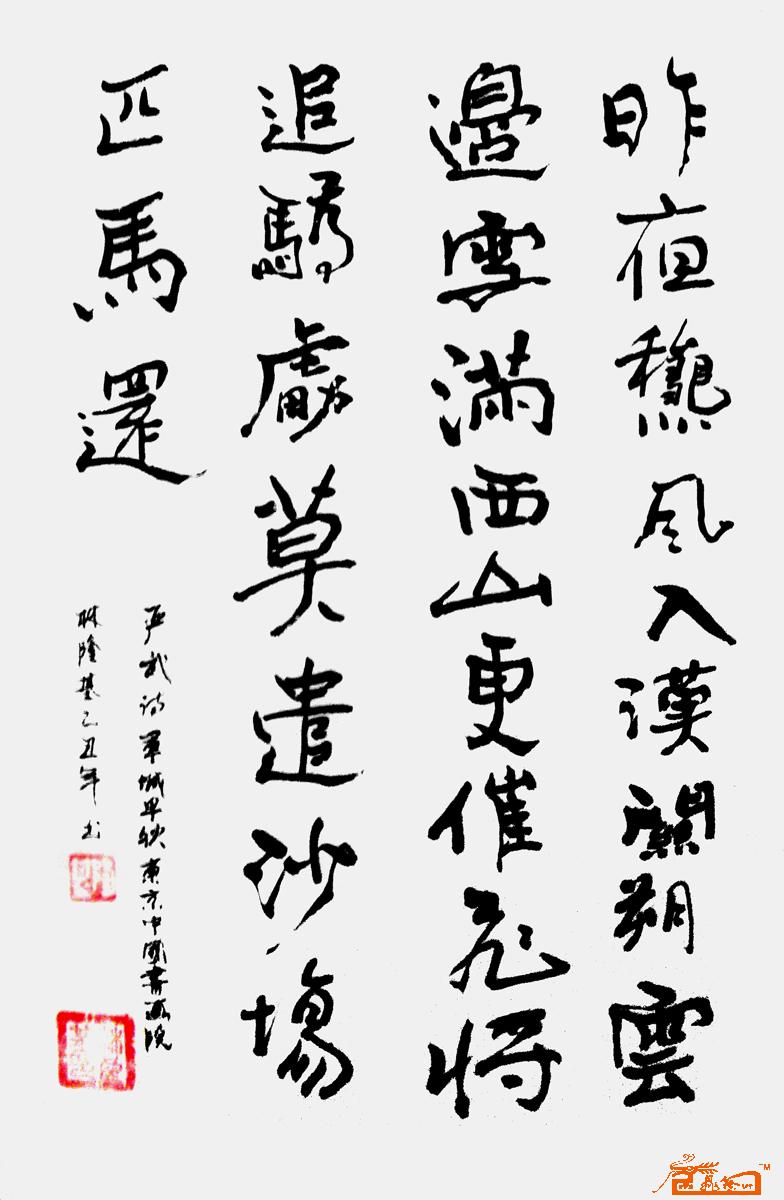 昨夜龝風入漢關朔雲
邊雪滿西山更催飛將
追驕虜莫遣沙場
匹馬還
严武诗軍城早秋東京中國書画院
林隆基己丑年书